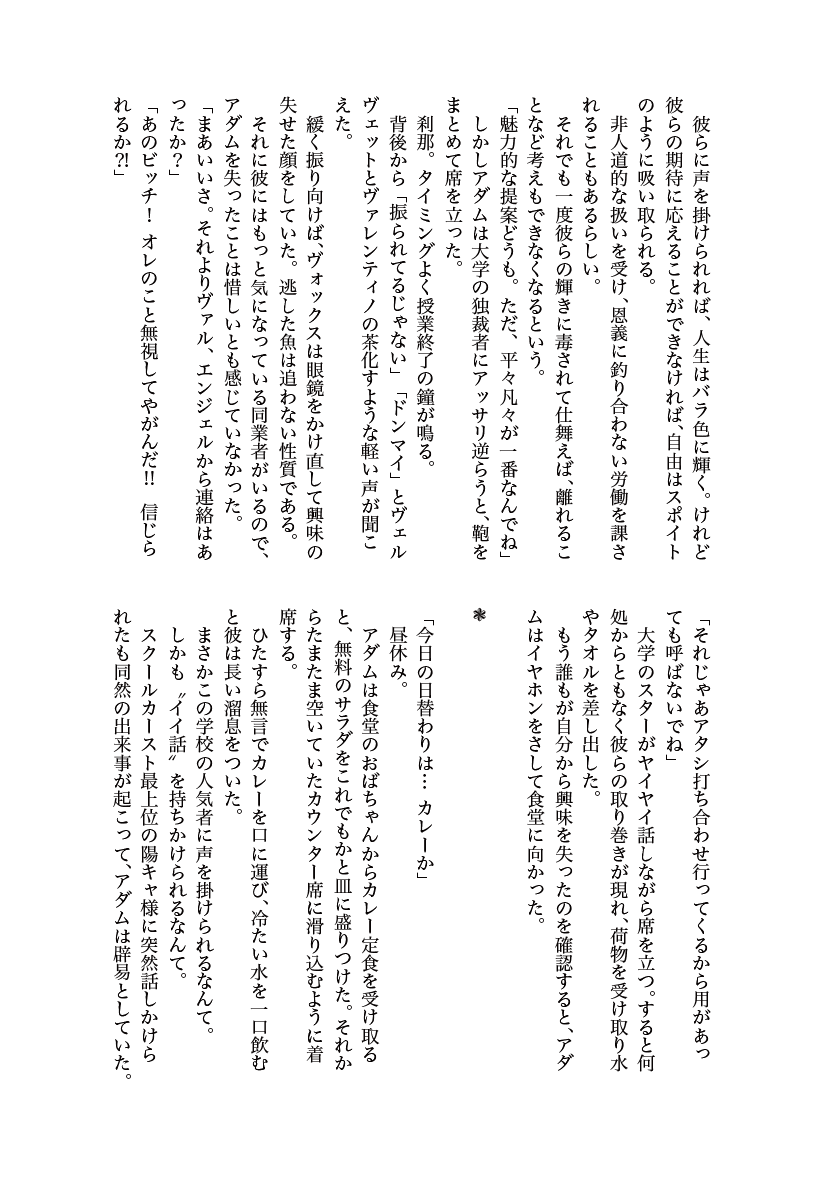 彼らに声を掛けられれば、人生はバラ色に輝く。けれど
彼らの期待に応えることができなければ、自由はスポイト
のように吸い取られる。
　非人道的な扱いを受け、恩義に釣り合わない労働を課さ
れることもあるらしい。
　それでも一度彼らの輝きに毒されて仕舞えば、離れるこ
となど考えもできなくなるという。
「魅力的な提案どうも。ただ、平々凡々が一番なんでね」
　しかしアダムは大学の独裁者にアッサリ逆らうと、鞄を
まとめて席を立った。
　刹那。タイミングよく授業終了の鐘が鳴る。
　背後から「振られてるじゃない」「ドンマイ」とヴェル
ヴェットとヴァレンティノの茶化すような軽い声が聞こ
えた。
　緩く振り向けば、ヴォックスは眼鏡をかけ直して興味の
失せた顔をしていた。逃した魚は追わない性質である。
　それに彼にはもっと気になっている同業者がいるので、
アダムを失ったことは惜しいとも感じていなかった。
「まあいいさ。それよりヴァル、エンジェルから連絡はあ
ったか？」
「あのビッチ！　オレのこと無視してやがんだ‼　信じら
れるか⁈」
「それじゃあアタシ打ち合わせ行ってくるから用があっ
ても呼ばないでね」
　大学のスターがヤイヤイ話しながら席を立つ。すると何
処からともなく彼らの取り巻きが現れ、荷物を受け取り水
やタオルを差し出した。
　もう誰もが自分から興味を失ったのを確認すると、アダ
ムはイヤホンをさして食堂に向かった。
＊
「今日の日替わりは…　カレーか」
　昼休み。
　アダムは食堂のおばちゃんからカレー定食を受け取る
と、無料のサラダをこれでもかと皿に盛りつけた。それか
らたまたま空いていたカウンター席に滑り込むように着
席する。
　ひたすら無言でカレーを口に運び、冷たい水を一口飲む
と彼は長い溜息をついた。
　まさかこの学校の人気者に声を掛けられるなんて。
　しかも〝イイ話〟を持ちかけられるなんて。
　スクールカースト最上位の陽キャ様に突然話しかけら
れたも同然の出来事が起こって、アダムは辟易としていた。